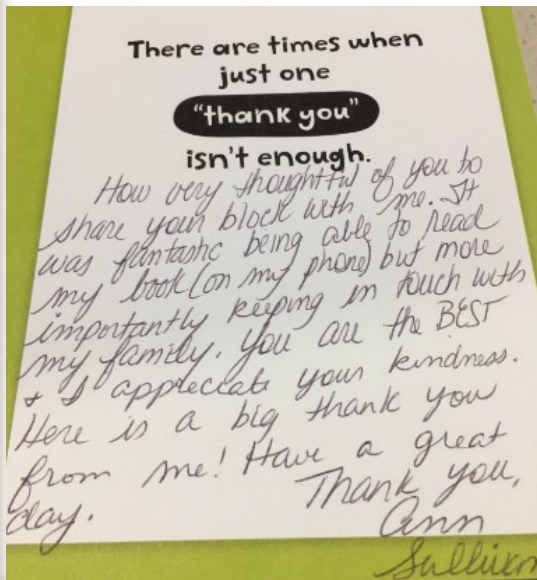 There are times when
just one
"thank you"
isn't enough.
How very thoughtful of you to
share your block with me. It
was fantastic being able to read
my book (on my phone) but more
importantly keeping in touch with
my family. You are the BEST
& I appreciate your kindness.
Here is a big thank you
from me! Have a great
day.
Thank you,
Ann
Sullivan